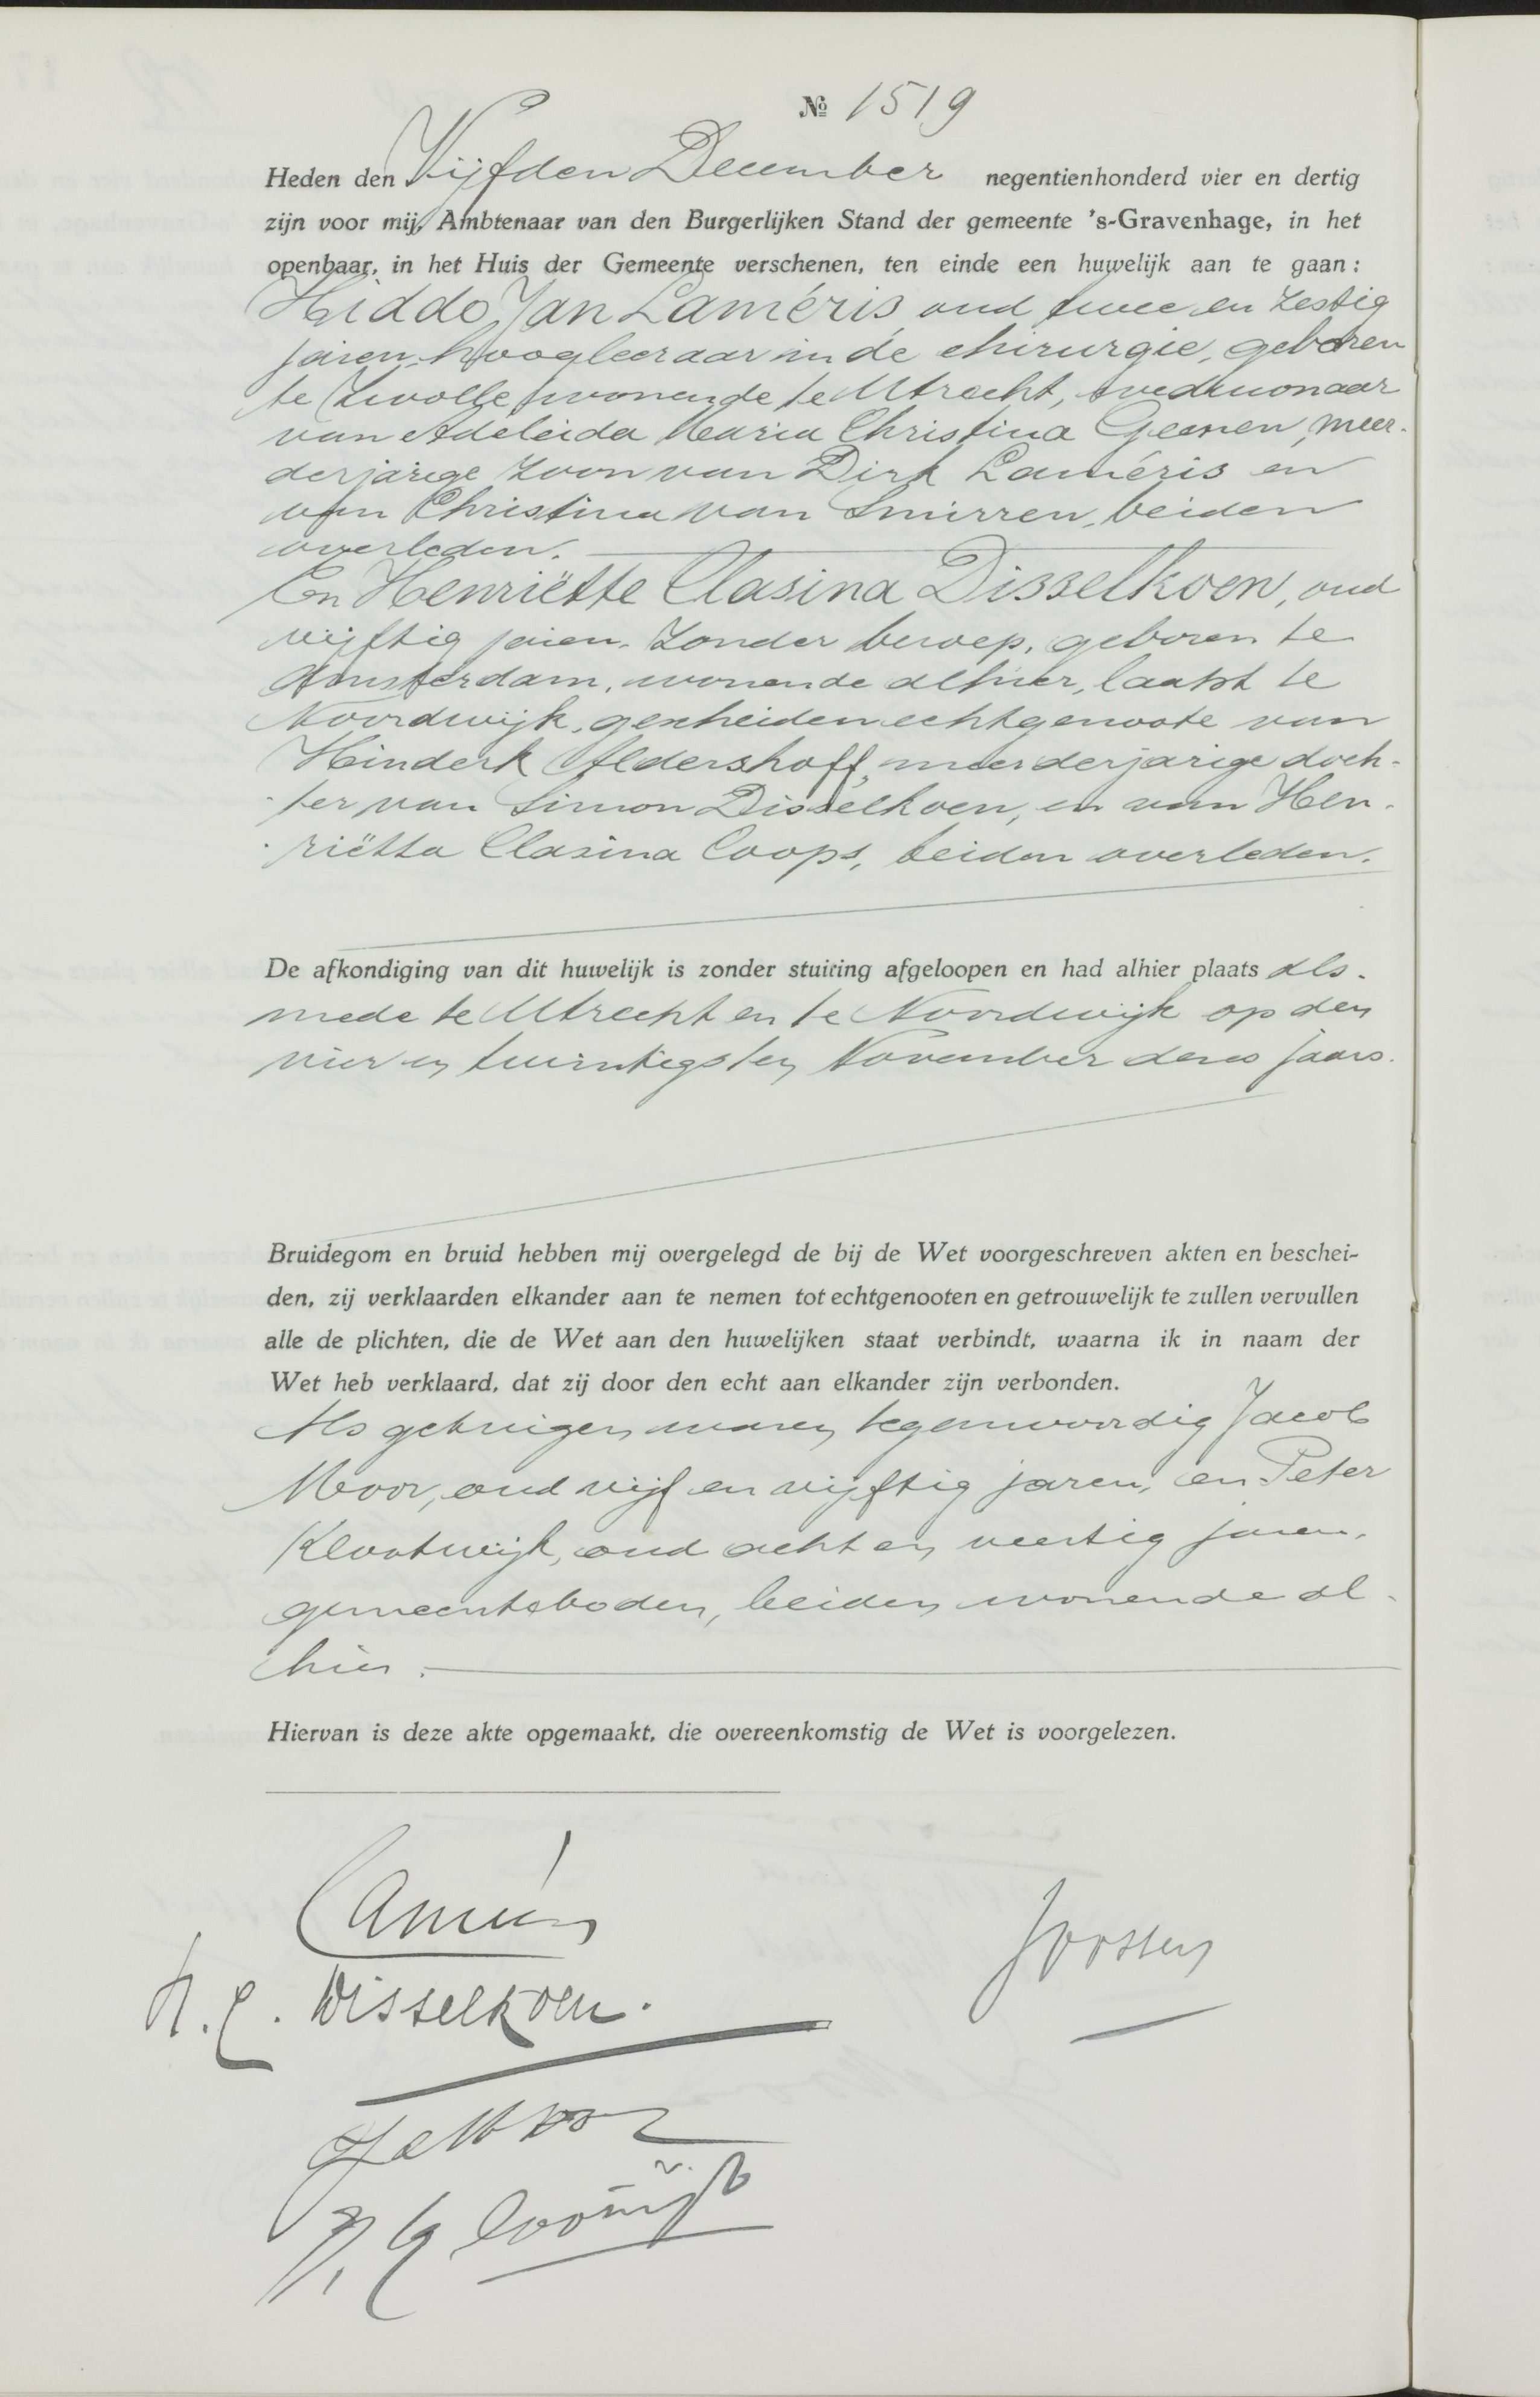 № 1519
Heden den Vijfden December negentienhonderd vier en dertig
zijn voor mij, Ambtenaar van den Burgerlijken Stand der gemeente 's-Gravenhage, in het
openbaar, in het Huis der Gemeente verschenen, ten einde een huwelijk aan te gaan:
Hiddo Jan Laméris, oud twee en zestig
jaren, hoogleeraar in de chirurgie, geboren
te Zwolle, wonende te Utrecht, weduwnaar
van Adeleida Maria Christina Geenen, meer-
derjarige zoon van Dirk Laméris en
van Christina van Smirren, beiden
overleden.
En Henriëtte Clasina Disselkoen, oud
vijftig jaren, zonder beroep, geboren te
Amsterdam, wonende alhier, laatst te
Noordwijk, gescheiden echtgenoote van
Hinderk Aldershoff, meerderjarige doch-
ter van Simon Disselkoen, en van Hen-
riëtta Clasina Coops, beiden overleden.
De afkondiging van dit huwelijk is zonder stuiting afgeloopen en had alhier plaats als-
mede te Utrecht en te Noordwijk op den
vier en twintigsten November dezes jaars.
Bruidegom en bruid hebben mij overgelegd de bij de Wet voorgeschreven akten en beschei-
den, zij verklaarden elkander aan te nemen tot echtgenooten en getrouwelijk te zullen vervullen
alle de plichten, die de Wet aan den huwelijken staat verbindt, waarna ik in naam der
Wet heb verklaard, dat zij door den echt aan elkander zijn verbonden.
Als getuigen waren tegenwoordig Jacob
Moor, oud vijf en vijftig jaren, en Peter
Klootwijk, oud acht en veertig jaren,
gemeenteboden, beiden wonende al-
hier.
Hiervan is deze akte opgemaakt, die overeenkomstig de Wet is voorgelezen.
Laméris
Joossen
H.C. Disselkoen.
JaMoor
P. Klootwijk